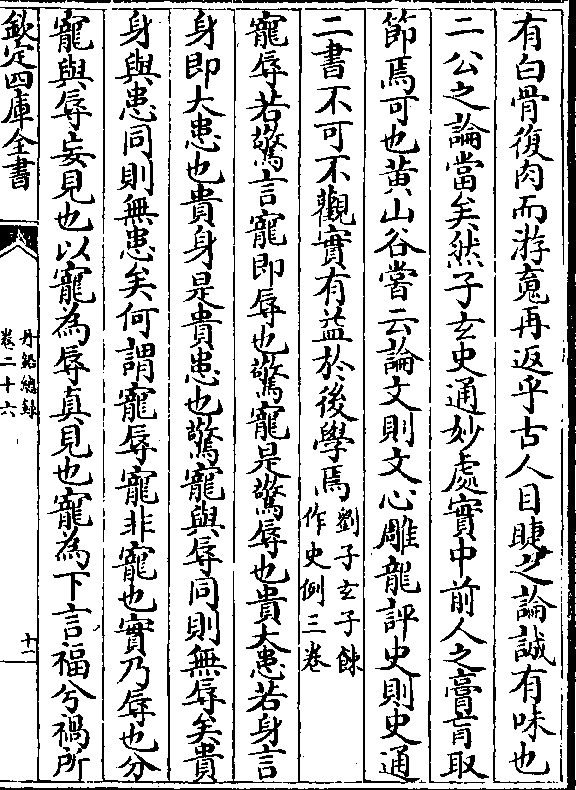 有白骨復肉而游魂再返乎古人目睫之論誠有味也
二公之論當矣然子玄史通妙處實中前人之膏肓取
節焉可也黃山谷嘗云論文則文心雕龍評史則史通
二書不可不觀實有益於後學焉劉子玄子餗
作史例三卷
寵辱若驚言寵即辱也驚寵是驚辱也貴大患若身言
身即大患也貴身是貴患也驚寵與辱同則無辱矣貴
身與患同則無患矣何謂寵辱寵非寵也實乃辱也分
寵與辱妄見也以寵為辱真見也寵為下言福兮禍所
欽定四庫全書
丹鉛總錄
卷二十六
十一